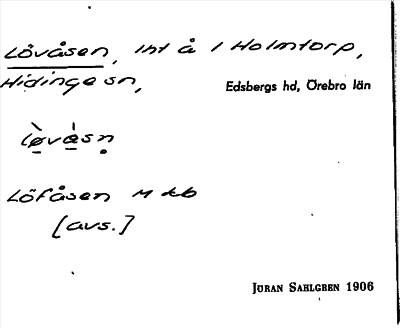 Lövåsen, Int å 1 Holmtorp,
Hidinge sn,
Edsbergs hd, Örebro län
lø̀và̱sn̥
Löfåsen M kb
[avs.]
JÖRAN SAHLGREN 1906